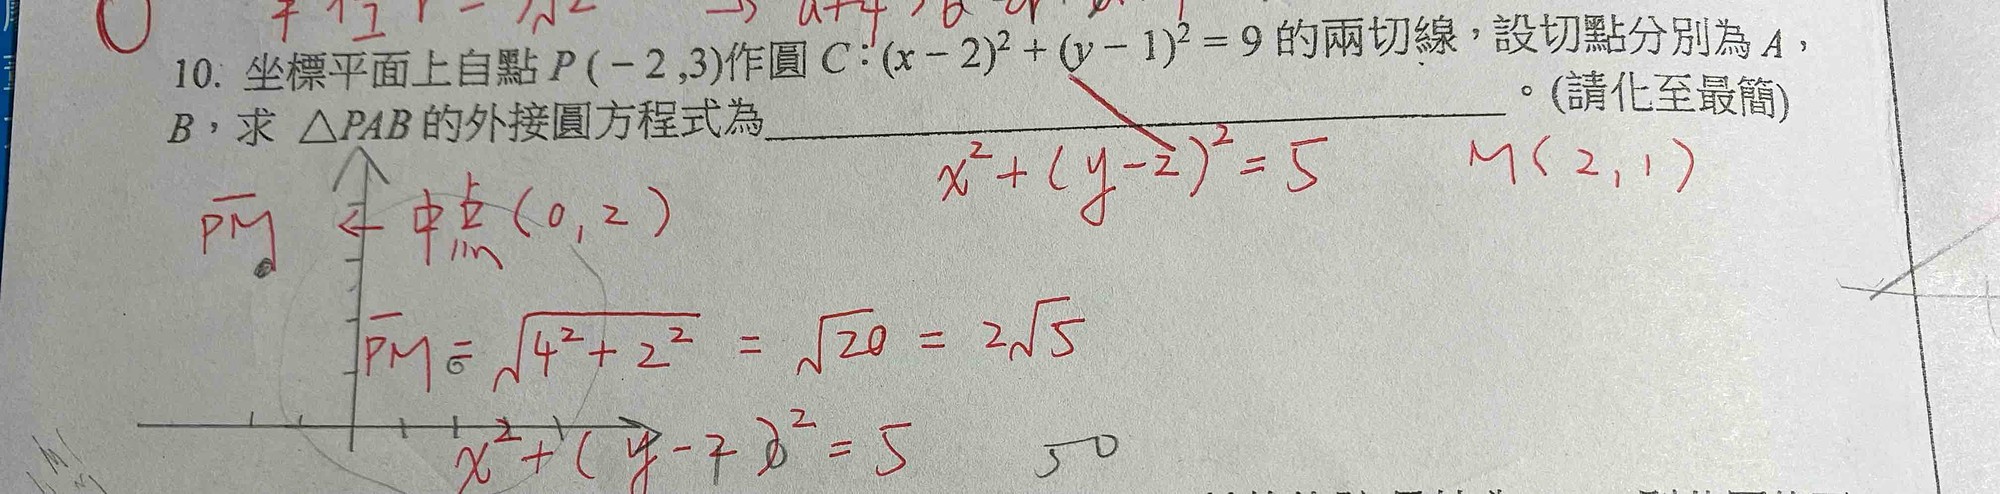 10. 坐標平面上自點 P(-2,3)作圓 C:(x-2)²+(y-1)²=9 的兩切線,設切點分別為 A,
B,求 △PAB 的外接圓方程式為____________。(請化至最簡)
x²+(y-2)²=5 M(2,1)
PM ← 中点(0,2)
PM = √4²+2² = √20 = 2√5
x²+(y-2)²=5